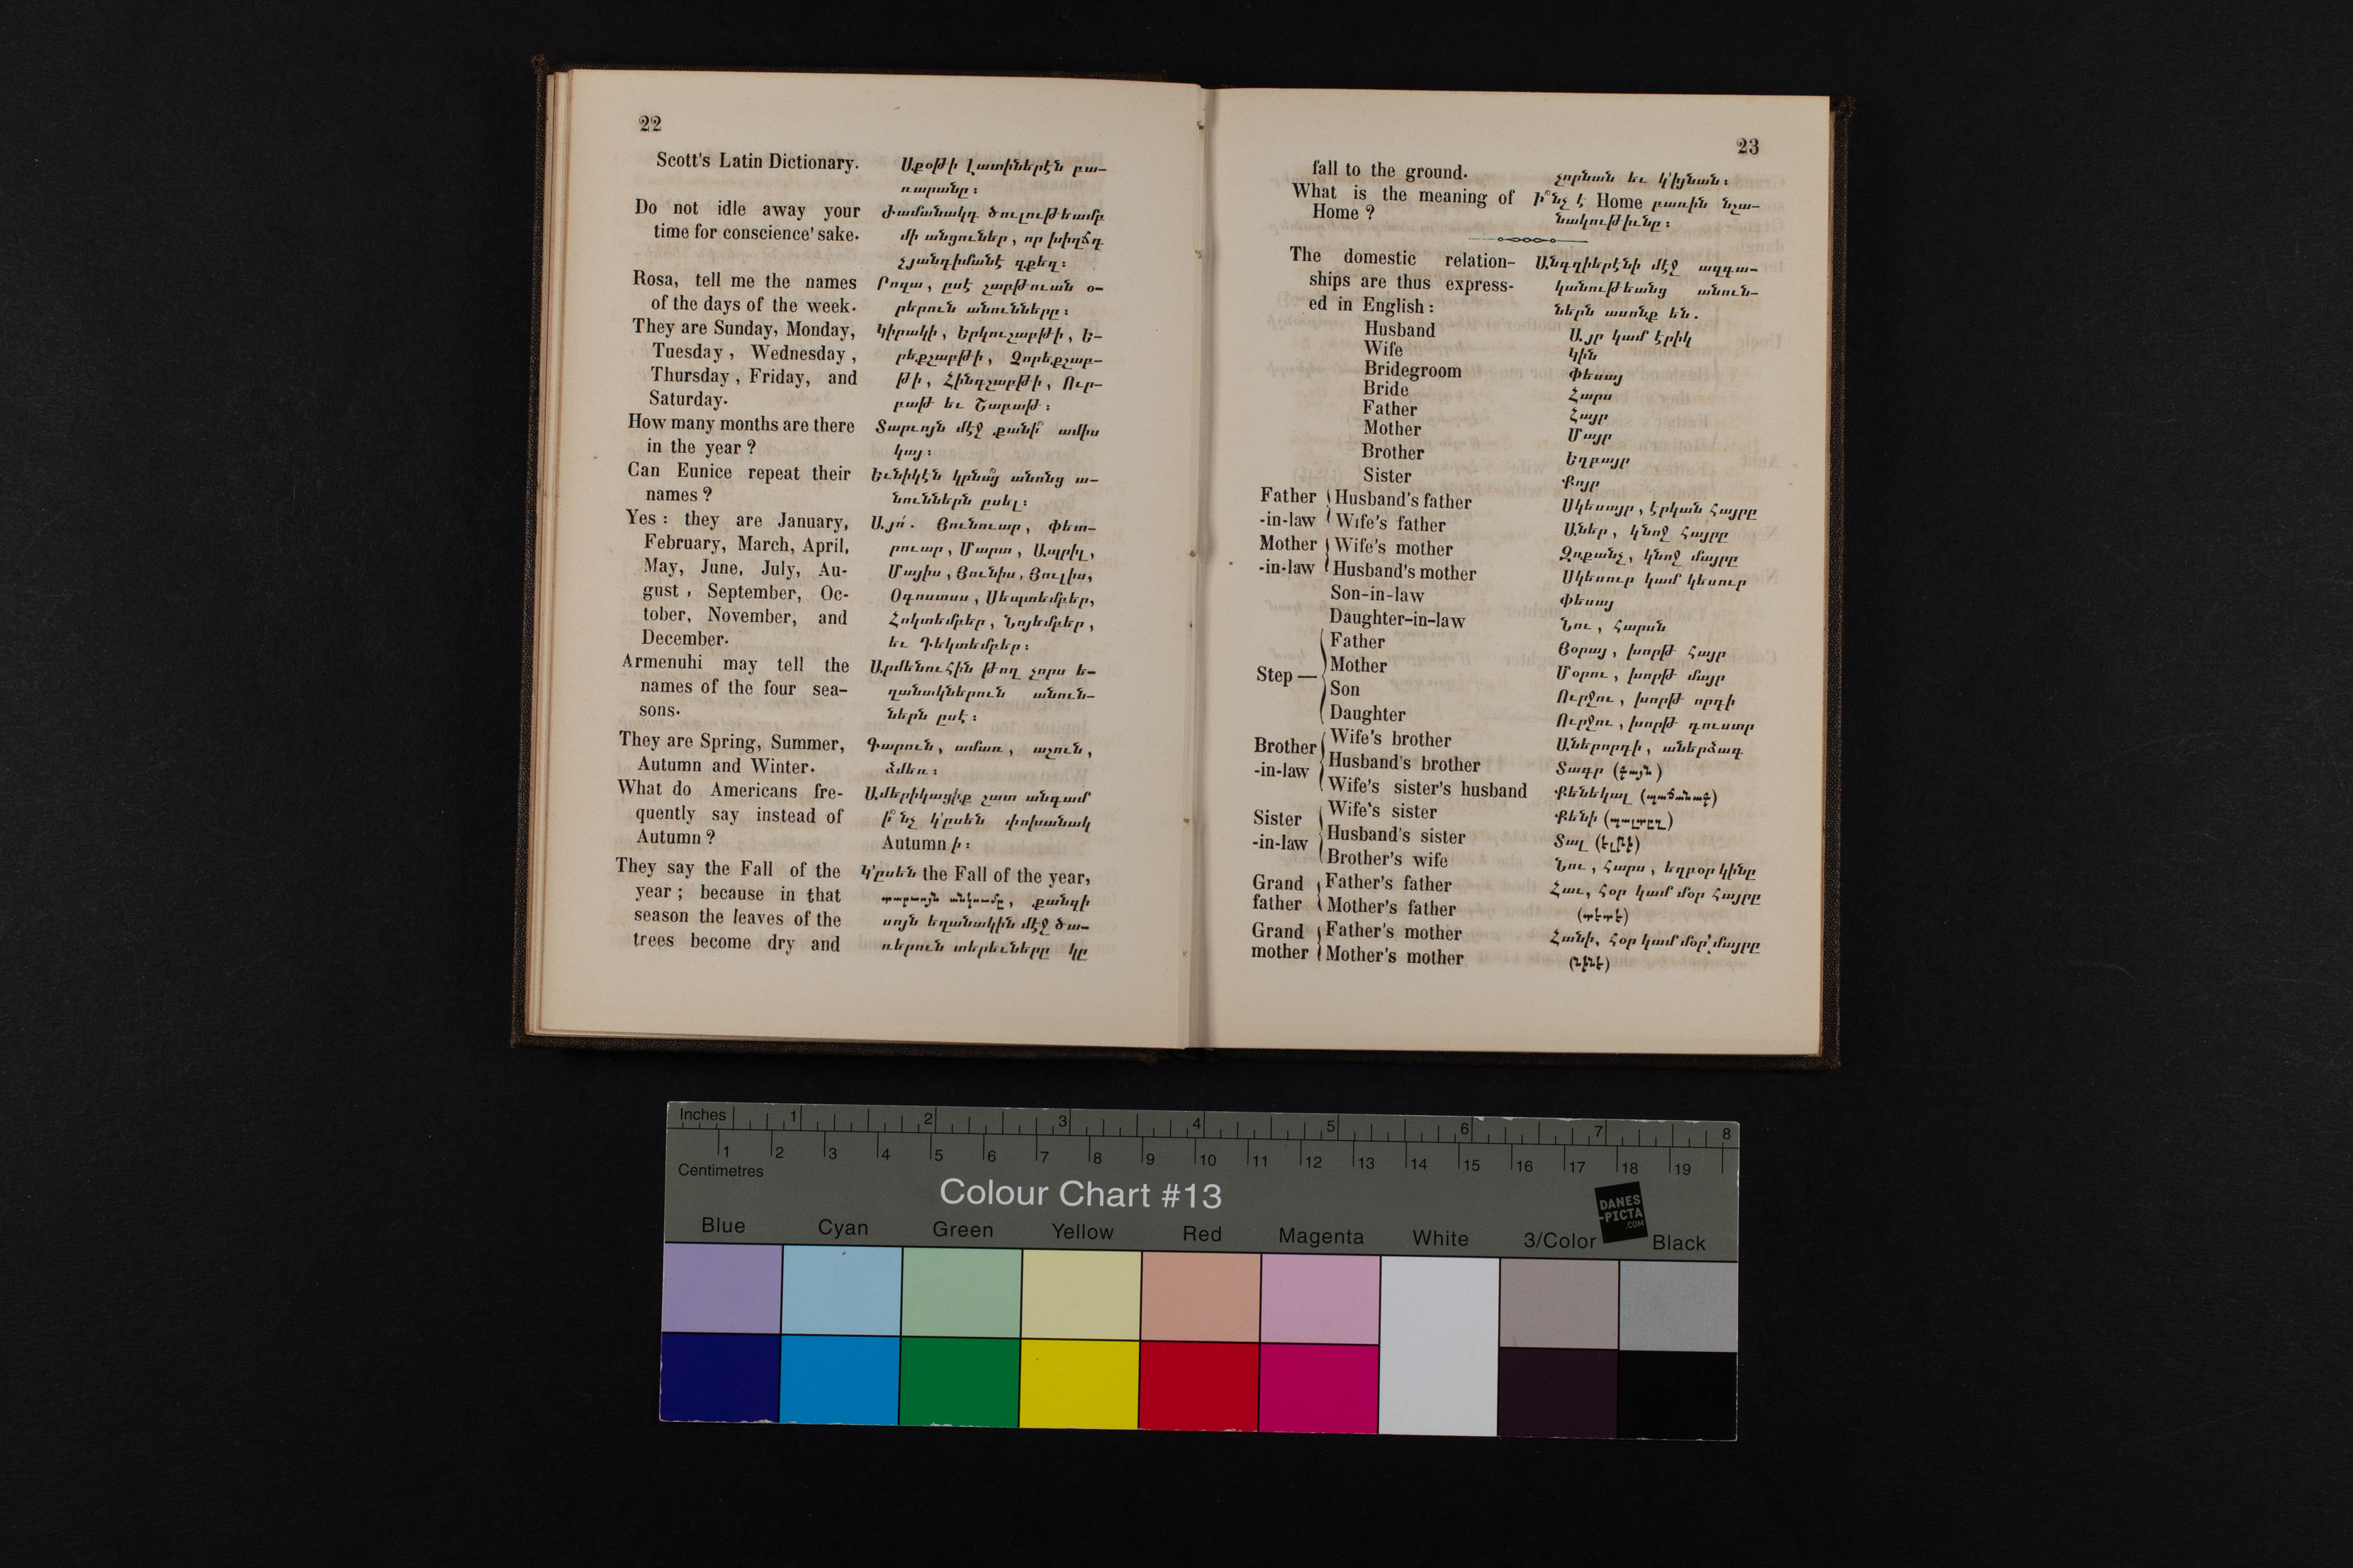 22
Scott's Latin Dictionary.
Սքօթի Լատիներէն բա-
ռարանը։
Do not idle away your
time for conscience' sake.
Ժամանակդ ծուլութեամբ
մի անցուներ, որ խիղճդ
չյանդիմանէ զքեզ։
Rosa, tell me the names
of the days of the week.
Րոզա, ըսէ շաբթուան օ-
րերուն անունները։
They are Sunday, Monday,
Tuesday, Wednesday,
Thursday, Friday, and
Saturday.
Կիրակի, Երկուշաբթի, Ե-
րեքշաբթի, Չորեքշաբ-
թի, Հինգշաբթի, Ուր-
բաթ եւ Շաբաթ։
How many months are there
in the year ?
Տարւոյն մէջ քանի՞ ամիս
կայ։
Can Eunice repeat their
names ?
Եւնիկէն կրնա՞յ անոնց ա-
նուններն ըսել։
Yes : they are January,
February, March, April,
May, June, July, Au-
gust, September, Oc-
tober, November, and
December.
Այո՛. Յունուար, Փետ-
րուար, Մարտ, Ապրիլ,
Մայիս, Յունիս, Յուլիս,
Օգոստոս, Սեպտեմբեր,
Հոկտեմբեր, Նոյեմբեր,
եւ Դեկտեմբեր։
Armenuhi may tell the
names of the four sea-
sons.
Արմենուհին թող չորս ե-
ղանակներուն անուն-
ներն ըսէ։
They are Spring, Summer,
Autumn and Winter.
Գարուն, ամառ, աշուն,
ձմեռ։
What do Americans fre-
quently say instead of
Autumn ?
Ամերիկացիք շատ անգամ
ի՞նչ կ'ըսեն փոխանակ
Autumn ի։
They say the Fall of the
year ; because in that
season the leaves of the
trees become dry and
Կ'ըսեն the Fall of the year,
տարւոյն անկումը, քանզի
սոյն եղանակին մէջ ծա-
ռերուն տերեւները կը
23
fall to the ground.
չորնան եւ կ'իյնան։
What is the meaning of
Home ?
Ի՞նչ է Home բառին նշա-
նակութիւնը։
The domestic relation-
ships are thus express-
ed in English :
Անգղիերէնի մէջ ազգա-
կանութեանց անուն-
ներն ասոնք են.
Husband Այր կամ էրիկ
Wife Կին
Bridegroom Փեսայ
Bride Հարս
Father Հայր
Mother Մայր
Brother Եղբայր
Sister Քոյր
Father Husband's father Սկեսայր, էրկան հայրը
-in-law Wife's father Աներ, կնոջ հայրը
Mother Wife's mother Զոքանչ, կնոջ մայրը
-in-law Husband's mother Սկեսուր կամ կեսուր
Son-in-law Փեսայ
Daughter-in-law Նու, հարսն
Father Յօրայ, խորթ հայր
Mother Մօրու, խորթ մայր
Step —
Son Ուրջու, խորթ որդի
Daughter Ուրջու, խորթ դուստր
Brother Wife's brother Աներորդի, աներձագ
-in-law Husband's brother Տագր (գայն)
Wife's sister's husband Քենեկալ (պաճանաք)
Sister Wife's sister Քենի (պալտըզ)
-in-law Husband's sister Տալ
Brother's wife Նու, հարս, եղբօր կինը
Grand Father's father Հաւ, հօր կամ մօր հայրը
father Mother's father (տէտէ)
Grand Father's mother Հանի, հօր կամ մօր մայրը
mother Mother's mother (նինէ)
Inches 1 2 3 4 5 6 7 8
1 2 3 4 5 6 7 8 9 10 11 12 13 14 15 16 17 18 19
Centimetres
Colour Chart #13
DANES
-PICTA
.COM
Blue Cyan Green Yellow Red Magenta White 3/Color Black